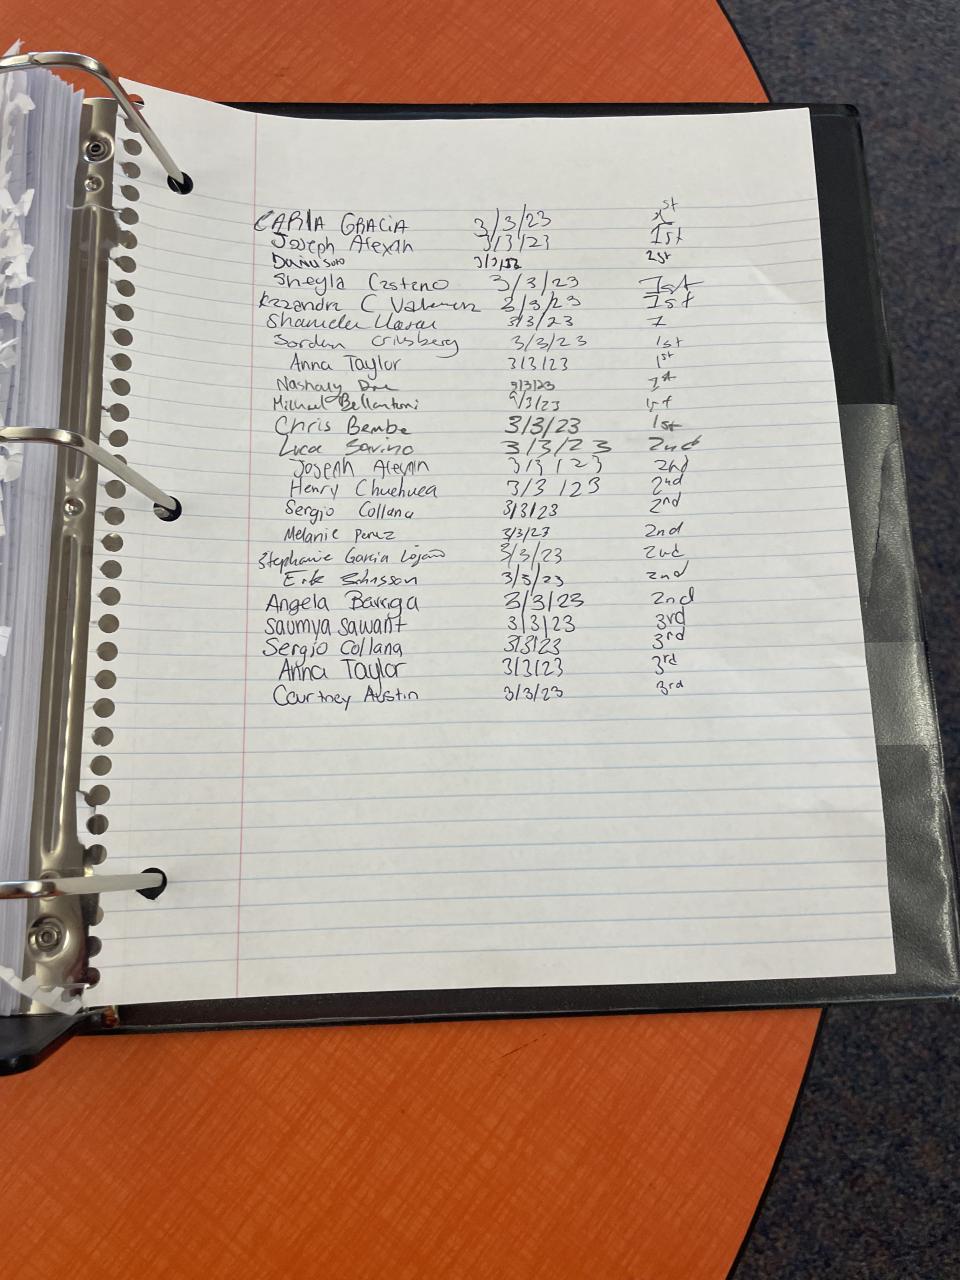 CARLA GRACIA 3/3/23 1st
Joseph Alexan 3/3/23 1st
Dariu Soto 3/3/23 1st
Sheyla Casteno 3/3/23 1st
Kazandra C 3/3/23 1st
3/3/23 1
Jordan 3/3/23 1st
Anna Taylor 3/3/23 1st
Nashaly 3/3/23 1st
Michael Bellantoni 3/3/23 1st
Chris Bembe 3/3/23 1st
Luca Savino 3/3/23 2nd
Joseph Alexan 3/3/23 2nd
Henry Chuehuea 3/3/23 2nd
Sergio Collana 3/3/23 2nd
Melanie perez 3/3/23 2nd
Stephanie Garcia 3/3/23 2nd
Erik 3/3/23 2nd
Angela Barriga 3/3/23 2nd
Saumya Sawant 3/3/23 3rd
Sergio Collana 3/3/23 3rd
Anna Taylor 3/3/23 3rd
Courtney Austin 3/3/23 3rd